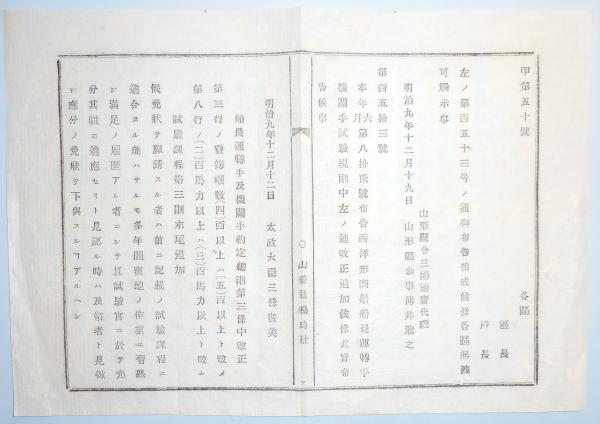 甲第五十號
各區
區長
戸長
左ノ第百五十三号ノ通御布告相成候條各區無洩
可觸示事
山形縣令三島通庸代理
明治九年十二月十九日 山形縣參事薄井龍之
第百五拾三號
本年六月第八拾貳號布告西洋形商船船長運轉手
機關手試驗規則中左ノ通改正追加候條此旨布
告候事
明治九年十二月十二日 太政大臣三條實美
船長運轉手及機關手約定總則第三條中改正
第三行ノ登簿噸數(四)百以上ハ(五)百以上ト改メ
第八行ノ(二)百馬力以上ハ(三)百馬力以上ト改ム
試驗課程第三則末尾追加
假免狀ヲ願請スル者ハ前ニ記載ノ試驗課程ニ
適合スル能ハサルモ多年間實地ノ作業ニ習熟
シ滿足ノ履歴アル者ニシテ且試驗官ニ於テ充
分其職ニ適應セリト見認ル時ハ及第者ト見做
シ應分ノ免狀ヲ下與スルヿアルヘシ
○山形縣鳴時社